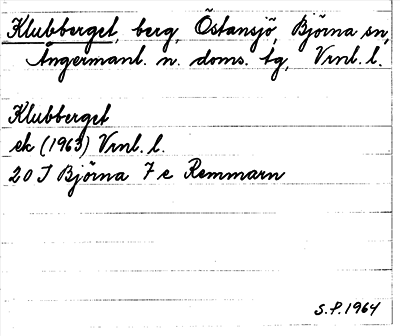 Klubberget, berg, Östansjö, Björna sn,
Ångermanl. n. doms. tg, Vrnl. l.
Klubberget
ek (1963) Vrnl. l.
20 J Björna 7 e Remmarn
S.P. 1964